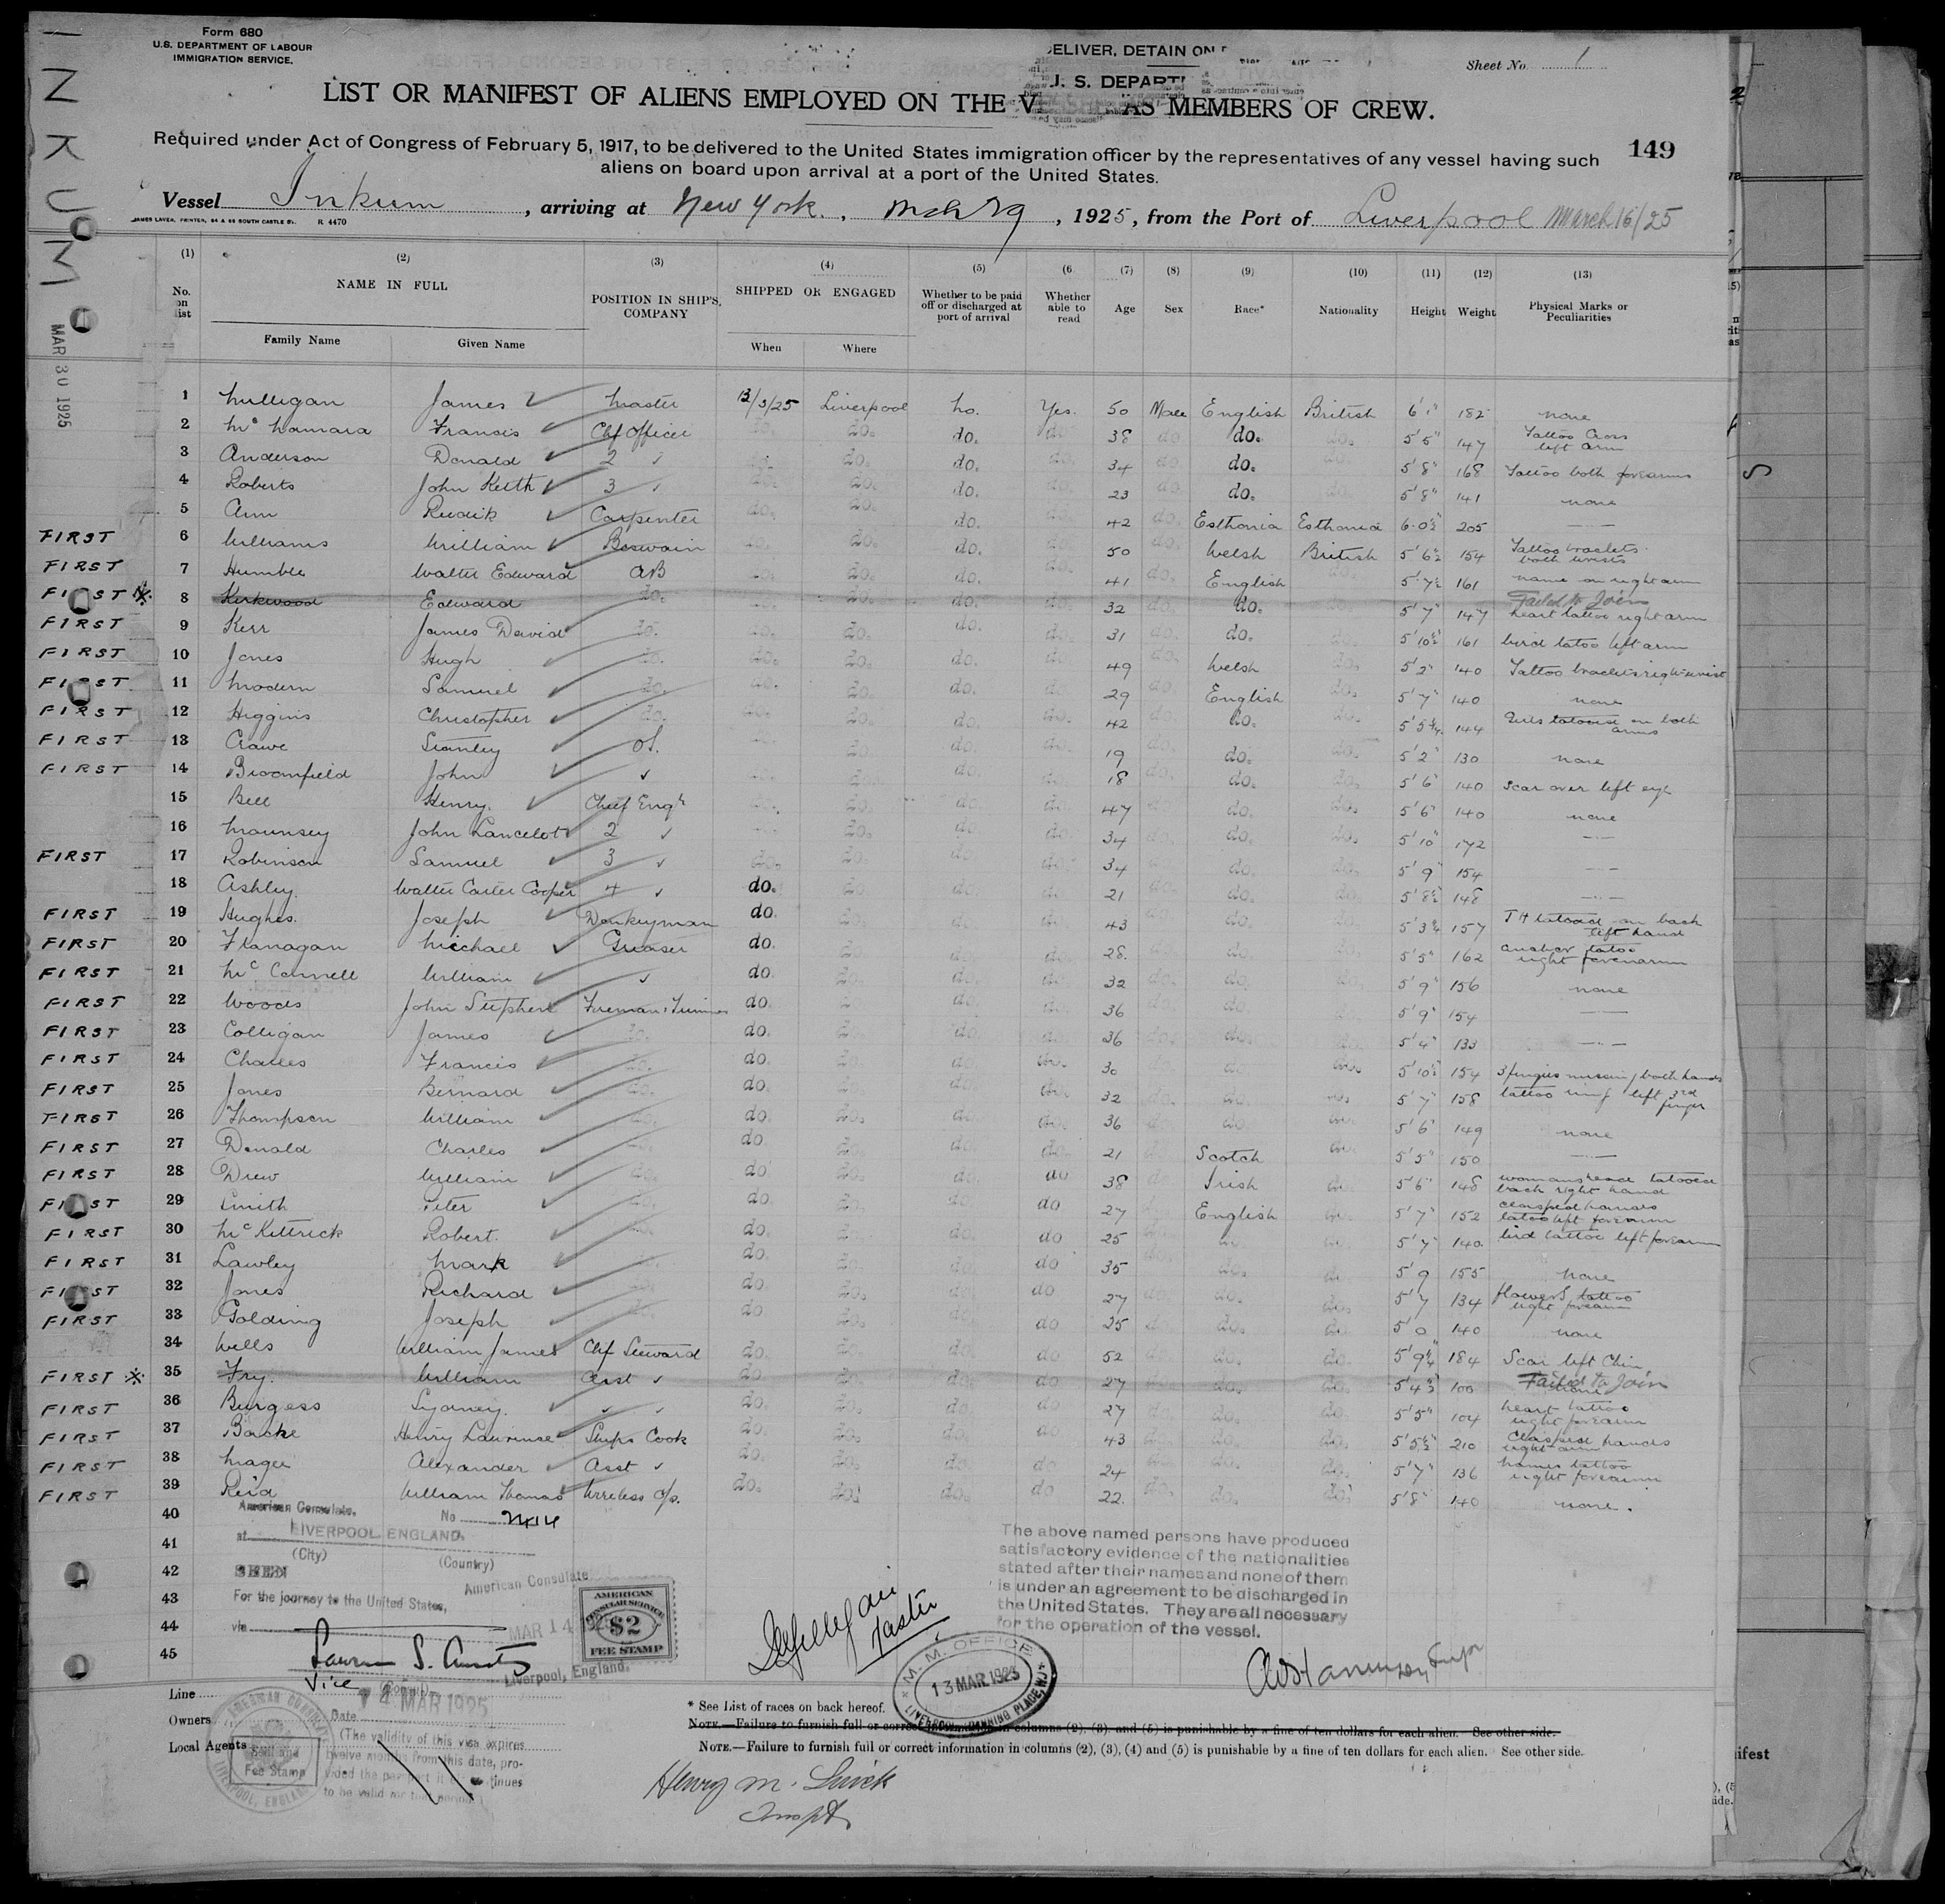 Form 680
U.S. DEPARTMENT OF LABOUR
IMMIGRATION SERVICE.
DELIVER, DETAIN ON
Sheet No. 1
U. S. DEPART
LIST OR MANIFEST OF ALIENS EMPLOYED ON THE V AS MEMBERS OF CREW.
149
Required under Act of Congress of February 5, 1917, to be delivered to the United States immigration officer by the representatives of any vessel having such
aliens on board upon arrival at a port of the United States.
Vessel Inkum, arriving at New York., Mch 29, 1925, from the Port of Liverpool March 16/25
JAMES LAVER, PRINTER, 64 & 66 SOUTH CASTLE St. R 4470
INKUM
MAR 30 1925
(1) (2) (3) (4) (5) (6 (7) (8) (9) (10) (11) (12) (13)
No. on list NAME IN FULL POSITION IN SHIP'S COMPANY SHIPPED OR ENGAGED Whether to be paid off or discharged at port of arrival Whether able to read Age Sex Race* Nationality Height Weight Physical Marks or Peculiarities
Family Name Given Name When Where
1 Mulligan James Master 13/3/25 Liverpool No. Yes. 50 Male English British 6'1" 182 none
2 McNamara Francis Chf Officer do. do. do. do 38 do do. do. 5'5" 147 Tattoo Cross left arm
3 Anderson Donald 2 do. do. do. do. 34 do do. do. 5'8" 168 Tattoo both forearms
4 Roberts John Keith 3 do. do. do. do. 23 do do. do. 5'8" 141 none
5 Arm Rudik Carpenter do. do. do. do. 42 do. Esthonia Esthonia 6.0½ 205 —
FIRST 6 Williams William Boswain do. do. do. do. 50 do. Welsh British 5'6½ 154 Tattoo braclets both wrists
FIRST 7 Humble Walter Edward AB do. do. do. do. 41 do. English do. 5'7½ 161 name on right arm
FIRST 8 Kirkwood Edward do. do. do. do. do. 32 do. do. do. 5'7" 147 Failed to Join heart tattoo right arm
FIRST 9 Kerr James David do. do. do. do. do. 31 do. do. do. 5'10½ 161 bird tatoo left arm
FIRST 10 Jones Hugh do. do. do. do. do. 49 do. Welsh do. 5'2" 140 Tattoo braclets right wrist
FIRST 11 Modern Samuel do. do. do. do. do. 29 do. English do. 5'7" 140 none
FIRST 12 Higgins Christopher do. do. do. do. 42 do. do. do. 5'5¾ 144 Girls tatooed on both arms
FIRST 13 Crawe Stanley O.S. do. do. do. 19 do. do. do. 5'2" 130 none
FIRST 14 Broomfield John do. do. do. 18 do. do. do. 5'6" 140 Scar over left eye
15 Bell Henry. Chief Engr do. do. do. 47 do. do. 5'6" 140 none
16 Mounsey John Lancelot 2 do. do. do. 34 do. do. do. 5'10" 172 —
FIRST 17 Robinson Samuel 3 do. do. do do. 34 do. do. 5'9" 154 —
18 Ashley. Walter Carter Cooper 4 do. do. do. 21 do. do. do. 5'8½ 148 —
FIRST 19 Hughes. Joseph Donkeyman do. do. do. do. 43 do. do. do. 5'3¾ 157 TH tatooed on back left hand
FIRST 20 Flanagan Micchael Greaser do. do. do. 28. do. do. do. 5'5" 162 anchor tatoo right forearm
FIRST 21 McConnell William do. do. do. do. 32 do. do. do. 5'9" 156 none
FIRST 22 Woods John Stephen Fireman & Trimmer do. do. do. 36 do. do. do. 5'9" 154 —
FIRST 23 Colligan James do. do. do. do. 36 do. do. do. 5'4" 133 —
FIRST 24 Charles Francis do. do. do. do. do. 30 do. do. do. 5'10½ 154 3 fingers missing both hands
FIRST 25 Jones Bernard do. do. do. do. do. 32 do. do. do. 5'7" 158 tattoo ring left 3rd finger
FIRST 26 Thompson William do. do. do. do. do. 36 do. do. do. 5'6" 149 none
FIRST 27 Donald Charles do. do. do. do. do. 21 do. Scotch do. 5'5" 150 —
FIRST 28 Drew William do. do. do. do. do 38 do. Irish do. 5'6" 148 womans head tatooed back right hand
FIRST 29 Smith Peter do. do. do. do. do 27 do. English do. 5'7" 152 clasped hands tatoo left forearm
FIRST 30 McKittrick Robert. do. do. do. do. do 25 do. do. do. 5'7" 140. bird tattoo left forearm
FIRST 31 Lawley Mark do. do. do. do. do 35 do. do. do. 5'9 155 none
FIRST 32 Jones Richard do. do. do. do. do 27 do. do. do. 5'7 134 flowers tattoo right forearm
FIRST 33 Golding Joseph do. do. do. do. do 25 do. do. do. 5'0 140 none
34 Wells William James Chf Steward do. do. do. do 52 do. do. do. 5'9¼ 184 Scar left Chin
FIRST 35 Fry. William Asst do. do. do. do 27 do. do. do. 5'4½ 100 Failed to Join none
FIRST 36 Burgess Sydney. do. do. do. do 27 do. do. do. 5'5" 104 heart tattoo right forearm
FIRST 37 Backe Henry Lawrence Ships Cook do. do. do. do 43 do. do. do. 5'5½ 210 Clasped hands right arm
FIRST 38 Mager Alexander Asst do. do. do. do 24 do. do. do. 5'7" 136 names tattoo right forearm
FIRST 39 Reid William Thomas Wireless O/p. do. do. do. do 22. do. do. do. 5'8" 140 none.
40
41
42
43
44
45
American Consulate,
No 2414
at LIVERPOOL, ENGLAND.
(City) (Country)
SEEN
For the journey to the United States,
via
American Consulate
MAR 14 1925
Liverpool, England.
Vice
(Consul)
14 MAR 1925
Date
(The validity of this visa expires
twelve months from this date, pro-
vided the passport it continues
to be valid for that period.)
AMERICAN
CONSULAR SERVICE
$2
FEE STAMP
Master
The above named persons have produced
satisfactory evidence of the nationalities
stated after their names and none of them
is under an agreement to be discharged in
the United States. They are all necessary
for the operation of the vessel.
M. M. OFFICE
13 MAR 1925
LIVERPOOL, CANNING PLACE
Line
Owners
Local Agents
Seal and
Fee Stamp
* See List of races on back hereof.
NOTE.—Failure to furnish full or correct information in columns (2), (3), and (5) is punishable by a fine of ten dollars for each alien. See other side.
NOTE.—Failure to furnish full or correct information in columns (2), (3), (4) and (5) is punishable by a fine of ten dollars for each alien. See other side.
Henry M.
Inspt.
ifest